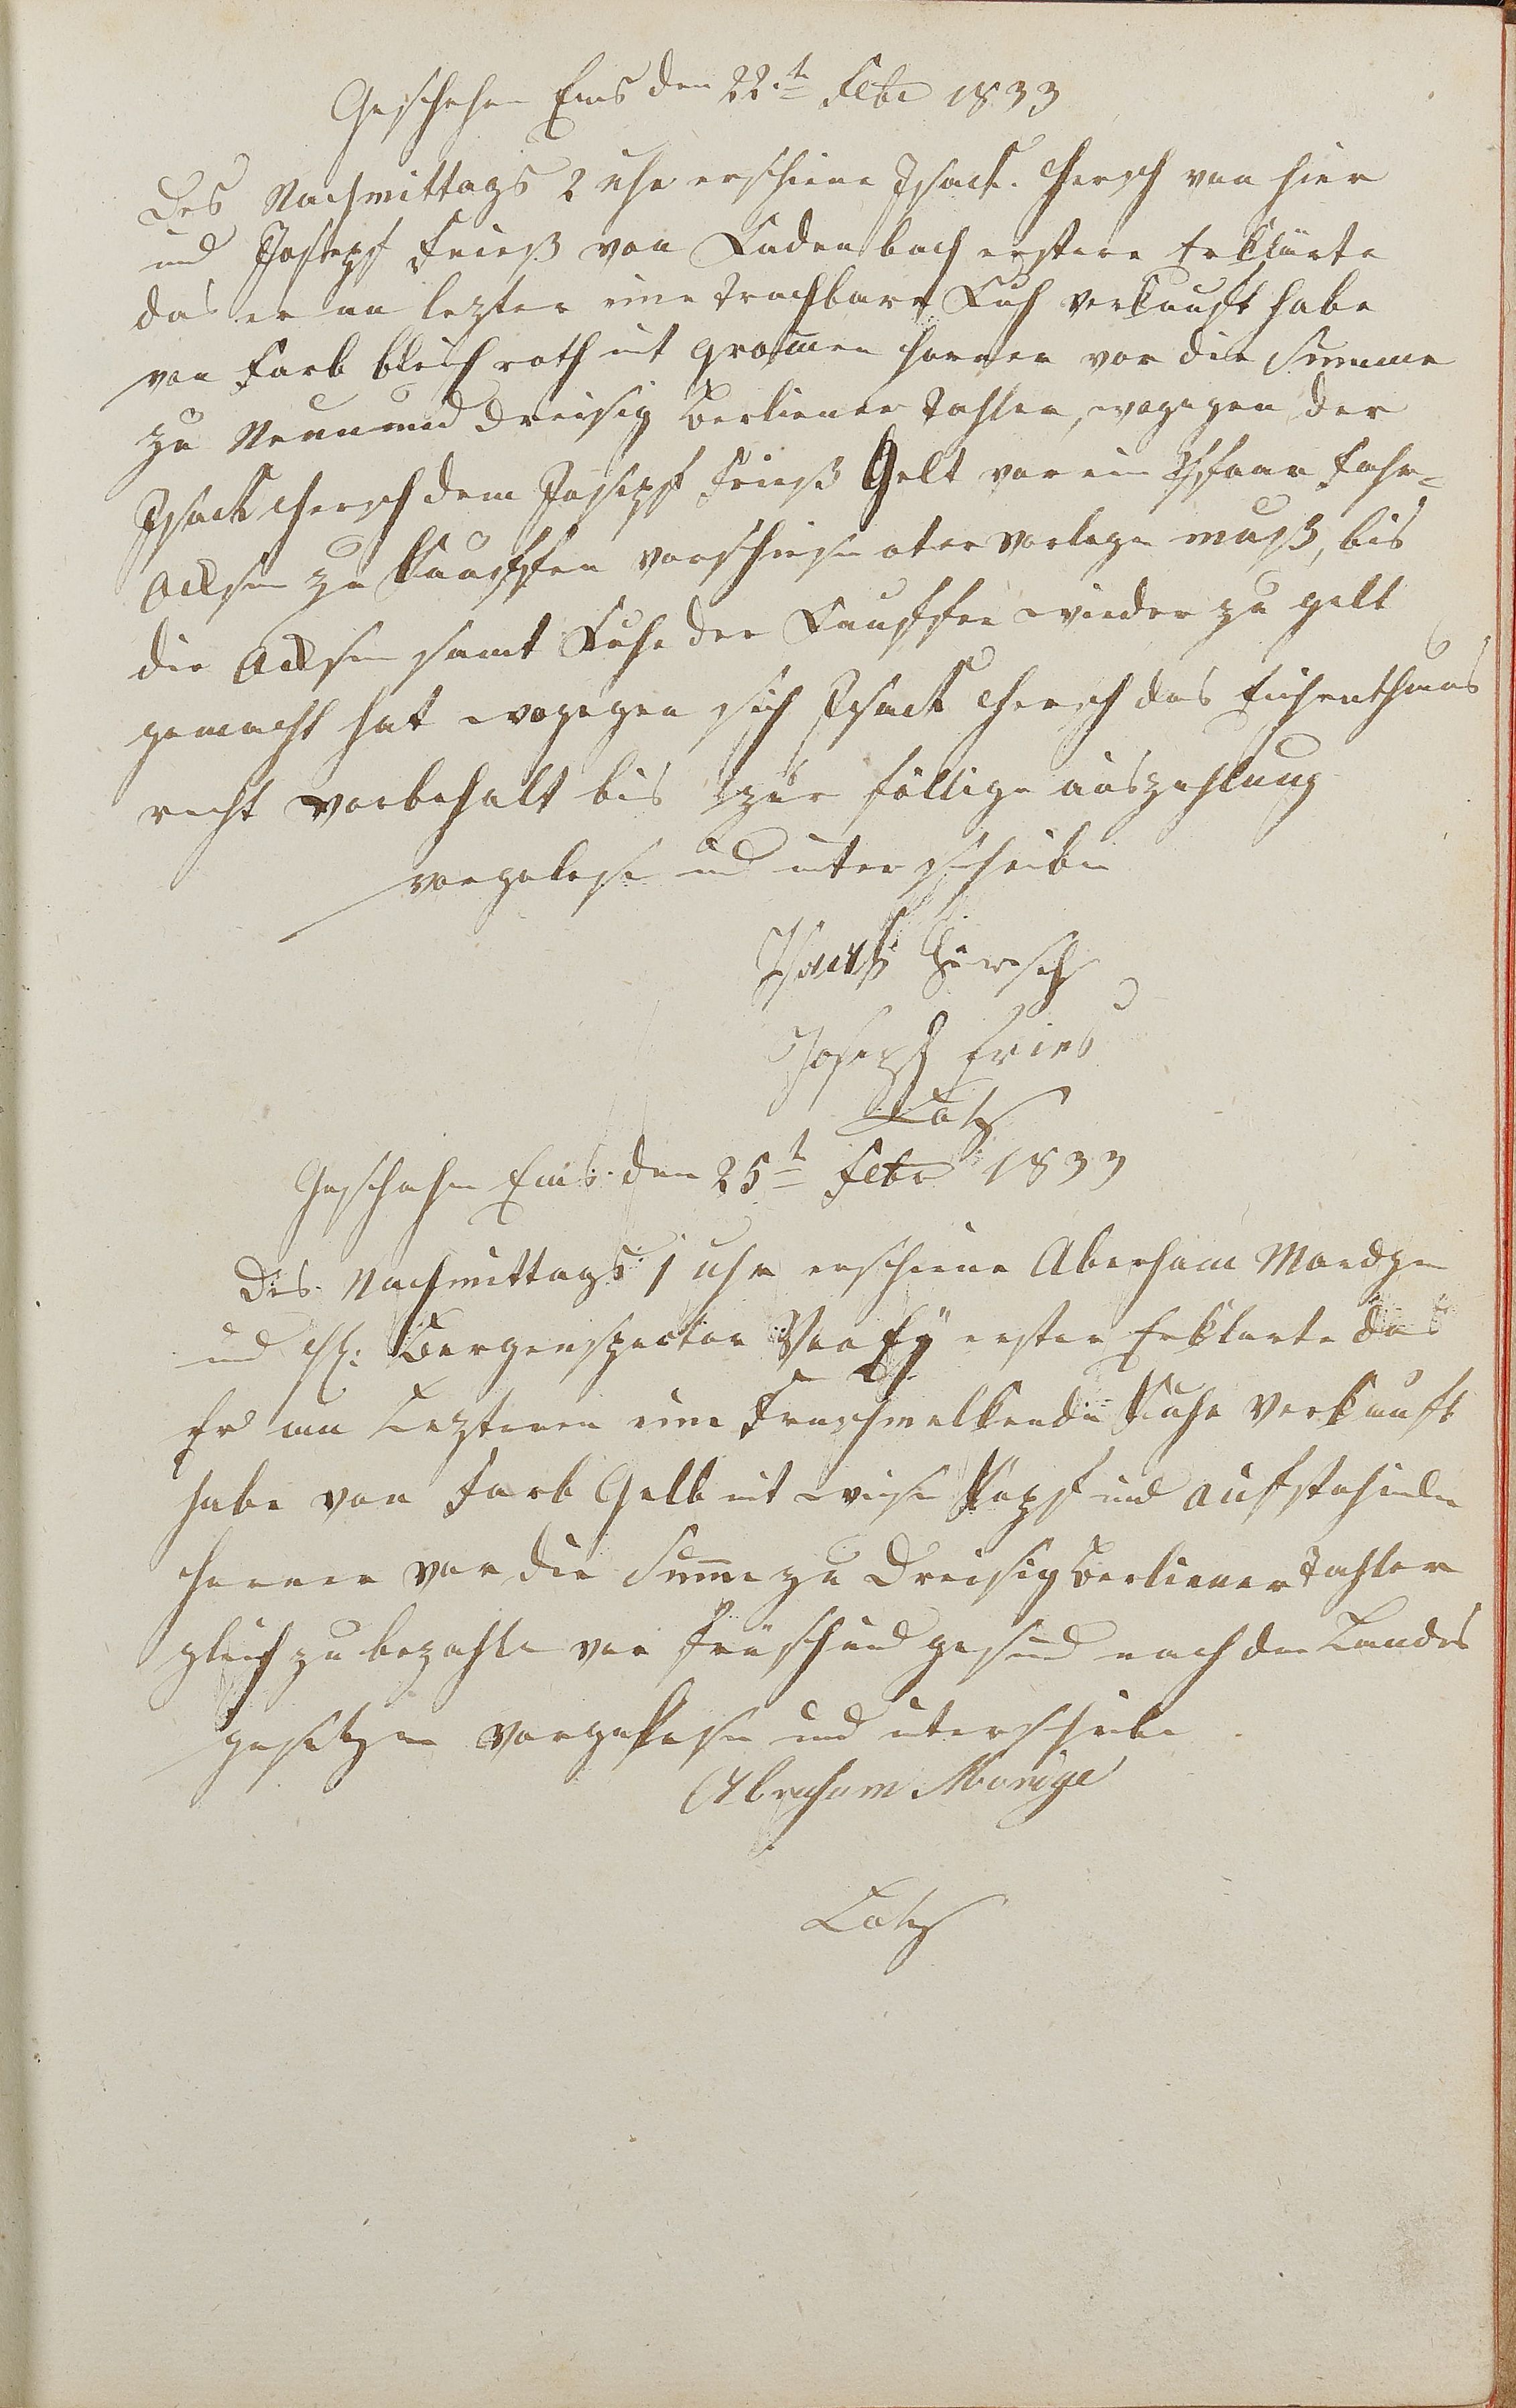 Geschehen Ems den 22.t Febr 1833
Des Nachmittags 2 uhr erschiene Isack Hersch von hier
und Joseph Frieß von Kadenbach erstere Erklärte
das er an lezter eine trachbare Kuh verkauft habe
von Farb bleich roth mit grommen Horner vor die Summe
zu Neunund dreisig Berliener Tahler, wogegen der
Isack Hersch dem Joseph Frieß Gelt vor ein Pfaar Fahr-
ocksen zu kauffen vorschiese oter vorlege muß, bis
die ocksen samt Kuhe der Kauffer wieder zu gelt
gemacht hat wogegen sich Isack Hersch das Eichenthums
recht vorbehalt bis zur föllige auszahlung
vorgelese und unterschreiben
Isack Hirsch
Joseph Fries
Lotz
Geschehen Ems den 25t Febr 1833
Des Nachmittags 1 uhr erschiene Aberham Mandge
und H: Bergenspector erster Erklarte das
Er an Lezteren eine Frischmelkende Kuhe Verkauft
habe von Farb Gelb mit weise Kopf und aufstehende
Horner vor die Summe zu Dreisig Berliener Tahler
gleich zu bezahle vor frisch und gesund nach den Landes
gesetzen vorgelese und unterschreibe
Abraham Mandge
Lotz